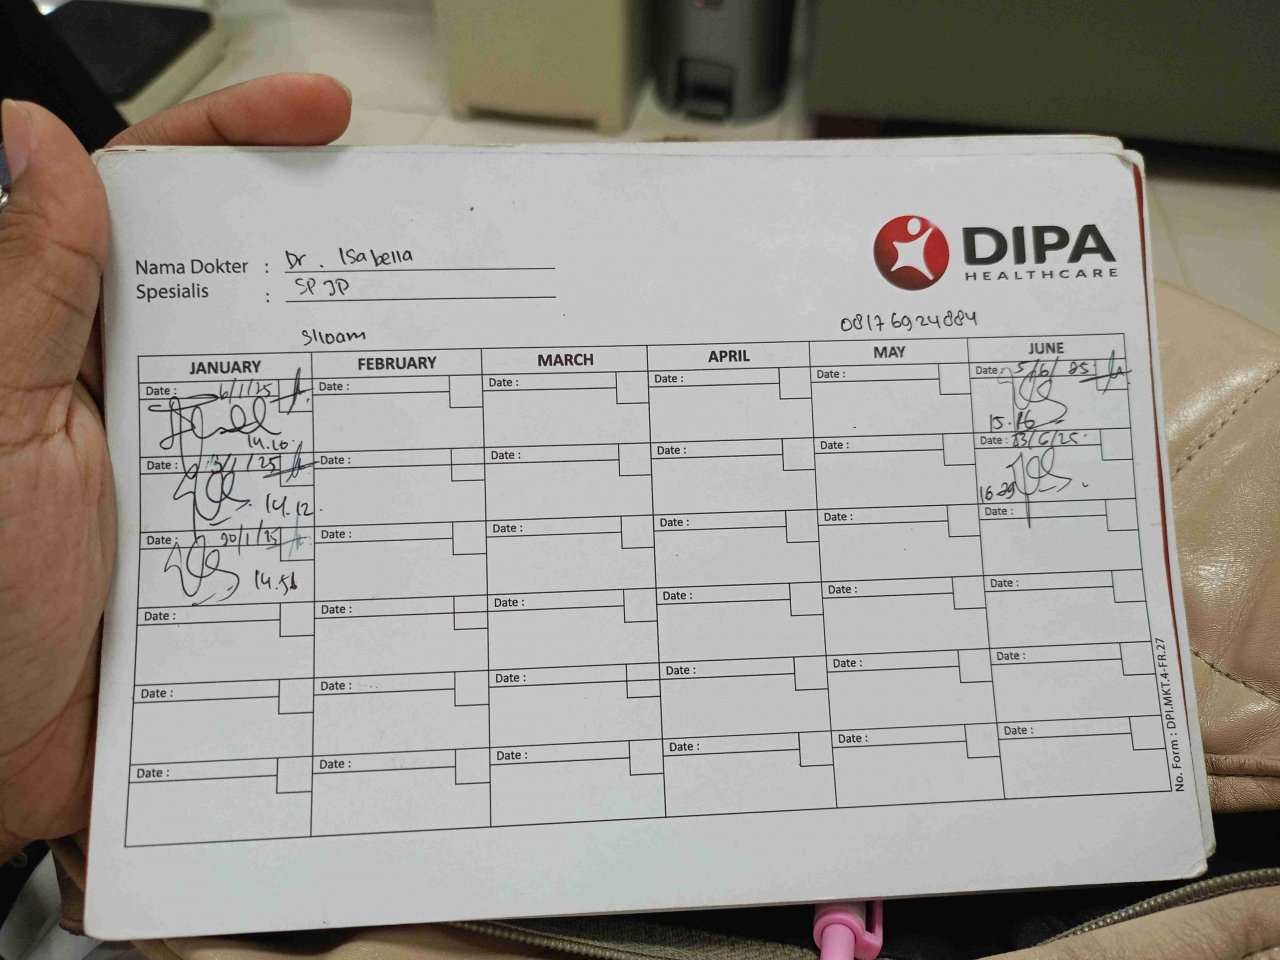 DIPA
HEALTHCARE
Nama Dokter : Dr. Isabella
Spesialis : SP JP
Siloam
08176924884
JANUARY FEBRUARY MARCH APRIL MAY JUNE
Date : 6/1/25 Date : Date : Date : Date : Date : 5/6/25
14.10 15.16
Date : 13/1/25 Date : Date : Date : Date : Date : 23/6/25
14.12 16.29
Date : 20/1/25 Date : Date : Date : Date : Date :
14.56
Date : Date : Date : Date : Date : Date :
Date : Date : Date : Date : Date : Date :
Date : Date : Date : Date : Date : Date :
No. Form : DPI.MKT.4-FR.27